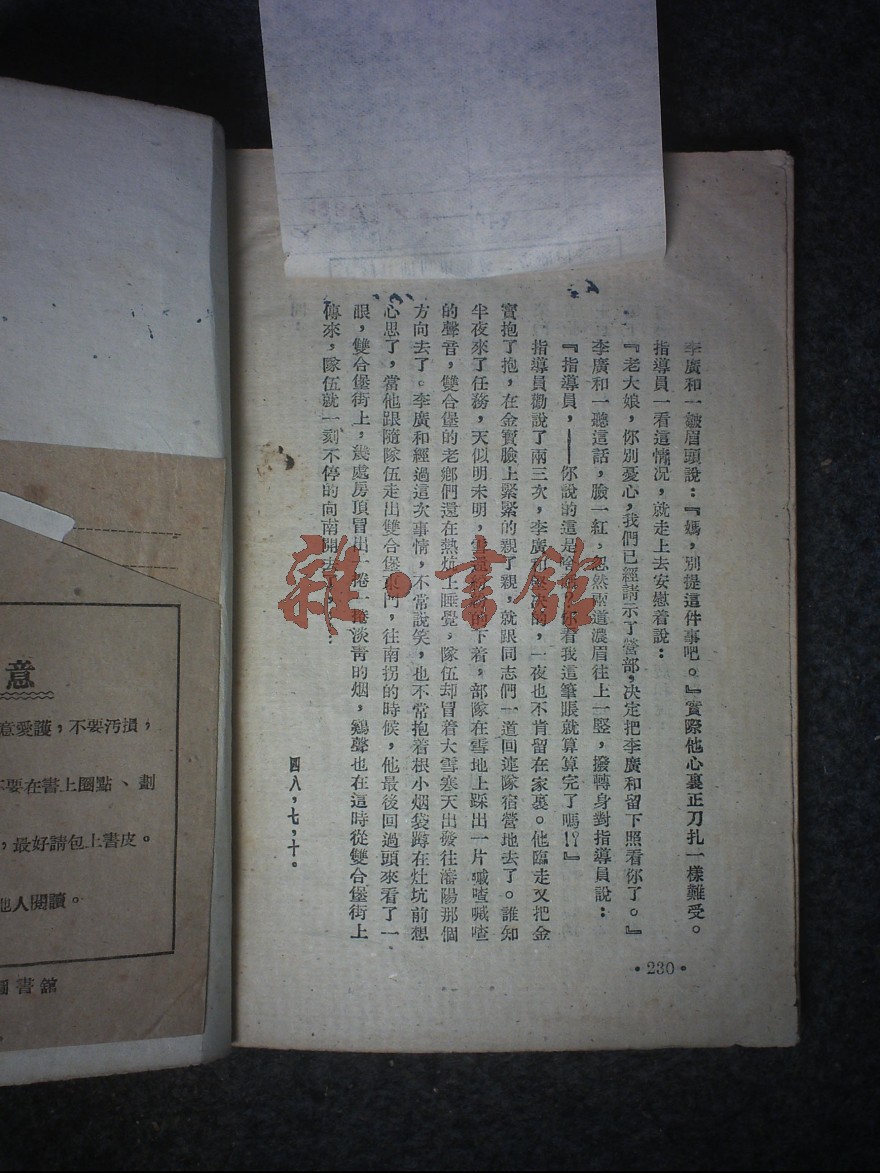 李廣和一皺眉頭說：『媽，別提這件事吧。』實際他心裏正刀扎一樣難受。
指導員一看這情况，就走上去安慰着說：
『老大娘，你別憂心，我們已經請示了營部，决定把李廣和留下照看你了。』
李廣和一聽這話，臉一紅，忽然兩道濃眉往上一竪，撥轉身對指導員說：
『指導員，——你說的這是啥話，你看我這筆賬就算算完了嗎！？』
指導員勸說了兩三次，李廣和堅决的，一夜也不肯留在家裏。他臨走又把金
寶抱了抱，在金寶臉上緊緊的親了親，就跟同志們一道回連隊宿營地去了。誰知
半夜來了任務，天似明未明，雪還紛紛的下着，部隊在雪地上踩出一片喊喳喊喳
的聲音，雙合堡的老鄉們還在熱炕上睡覺，隊伍却冒着大雪寒天出發往瀋陽那個
方向去了。李廣和經過這次事情，不常說笑，也不常抱着根小烟袋蹲在灶坑前想
心思了，當他跟隨隊伍走出雙合堡東門，往南拐的時候，他最後回過頭來看了一
眼，雙合堡街上，幾處房頂冒出一捲一捲淡青的烟，鷄聲也在這時從雙合堡街上
傳來，隊伍就一刻不停的向南開去了……
四八，七，十。
·230·
雜·書館
意
意愛護，不要汚損，
不要在書上圈點、劃
，最好請包上書皮。
他人閱讀。
圖書館